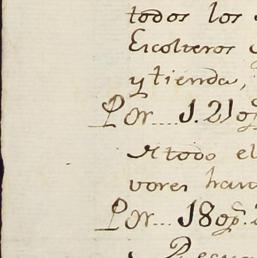 todos los
Escolteros
y tienda,
Por... 1.21 og
A todo el
vores hara
Por... 18 og.